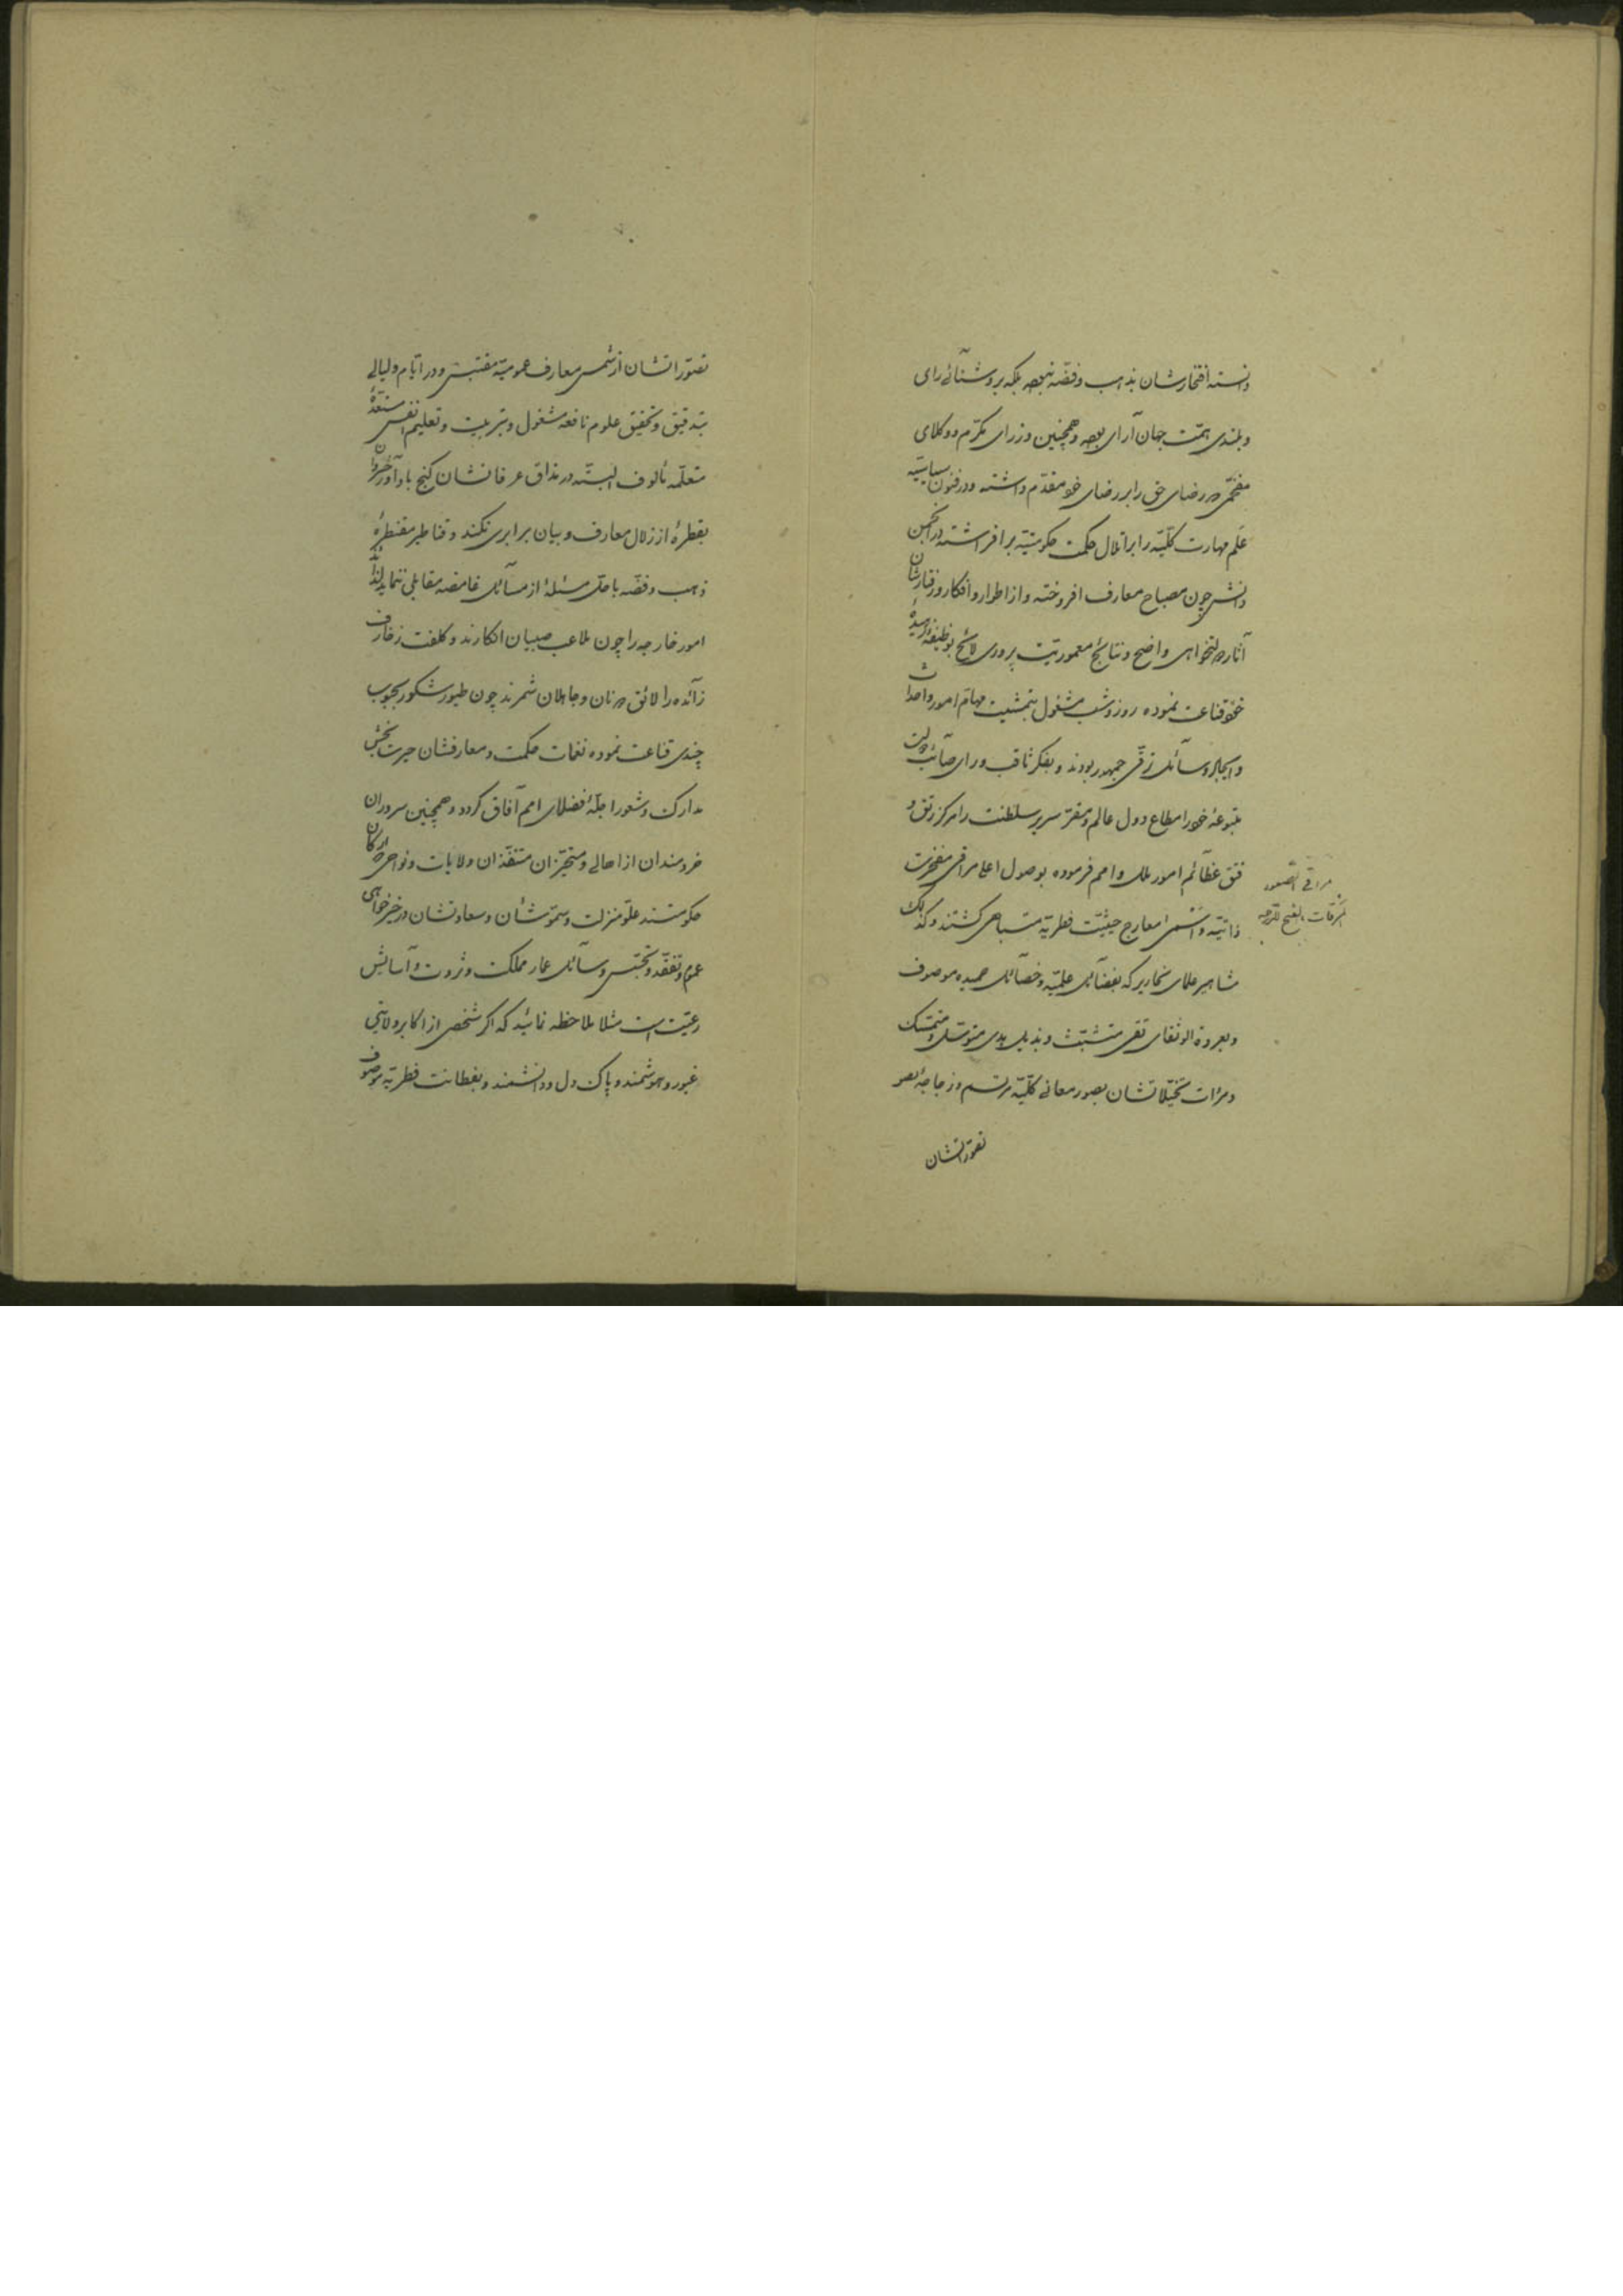 دانسته افتخارشان بذهب و فضّه نبوده بلکه بروشنائی رای
و بلندی همّت جهان آرای بوده و همچنین وزرای مکرّم و وکلای
مفخّمی که رضای حق را بر رضای خود مقدّم داشته و در فنون سیاسیّه
عَلَم مهارت کلّیّه را بر اتلال حکمت حکومتیّه برافراشته در انجمن
دانش چون مصباح معارف افروخته و از اطوار و افکار و رفتارشان
آثار دولتخواهی واضح و نتائج معموریّت پروری لائح بوظیفهٔ زهیدهٔ
خود قناعت نموده روز و شب مشغول بتمشیت مهامّ امور و احداث
و ایجاد وسائل ترقّی جمهور بودند و بفکر ثاقب و رای صآئب دولت
متبوعهٔ خود را مطاع دول عالم و مقرّ سریر سلطنت را مرکز رتق و
فتق عظآئم امور ملل و امم فرموده بوصول اعلی مراقی مفخرت
ذاتیّه و اسمی معارج حیثیّت فطریّه متباهی گشتند و کذلک
مشاهیر علمای نحاریر که بفضآئل علمیّه و خصآئل حمیده موصوف
و بعروة الوثقای تقی متشبّث و بذیل هدی متوسّل و متمسّک
و مرآت تخیّلاتشان بصور معانی کلّیّه مرتسم و زجاجهٔ تصو
تصوّراتشان
مراقی الصعود
المرقات بالفتح للدرجه
تصوّراتشان از شمس معارف عمومیّه مقتبس و در ایّام و لیالی
بتدقیق و تحقیق علوم نافعه مشغول و بتربیت و تعلیم انفس مستعدّهٔ
متعلّمه مألوف البتّه در مذاق عرفانشان گنج بادآور خسروان
بقطرهٔ از زلال معارف و بیان برابری نکند و قناطیر مقنطرهٔ
ذهب و فضّه با حلّ مسئلهٔ از مسآئل غامضه مقابلی ننماید لذائذ
امور خارجه را چون ملاعب صبیان انگارند و کلفت زخارف
زآئده را لائق دونان و جاهلان شمرند چون طیور شکور بحبوب
چندی قناعت نموده نغمات حکمت و معارفشان حیرت بخش
مدارک و شعور اجلّهٔ فضلای امم آفاق گردد و همچنین سروران
خردمندان از اهالی و متحیّزان متنفّذان ولایات و نواحی که ارکان
حکومتند علوّ منزلت و سموّ شأن و سعادتشان در خیرخواهی
عموم و تفقّد و تجسّس وسآئل عمار مملکت و ثروت و آسایش
رعیّت است مثلا ملاحظه نمائید که اگر شخصی از اکابر ولایتی
غیور و هوشمند و پاک دل و دانشمند و بفطانت فطریّه موصوف